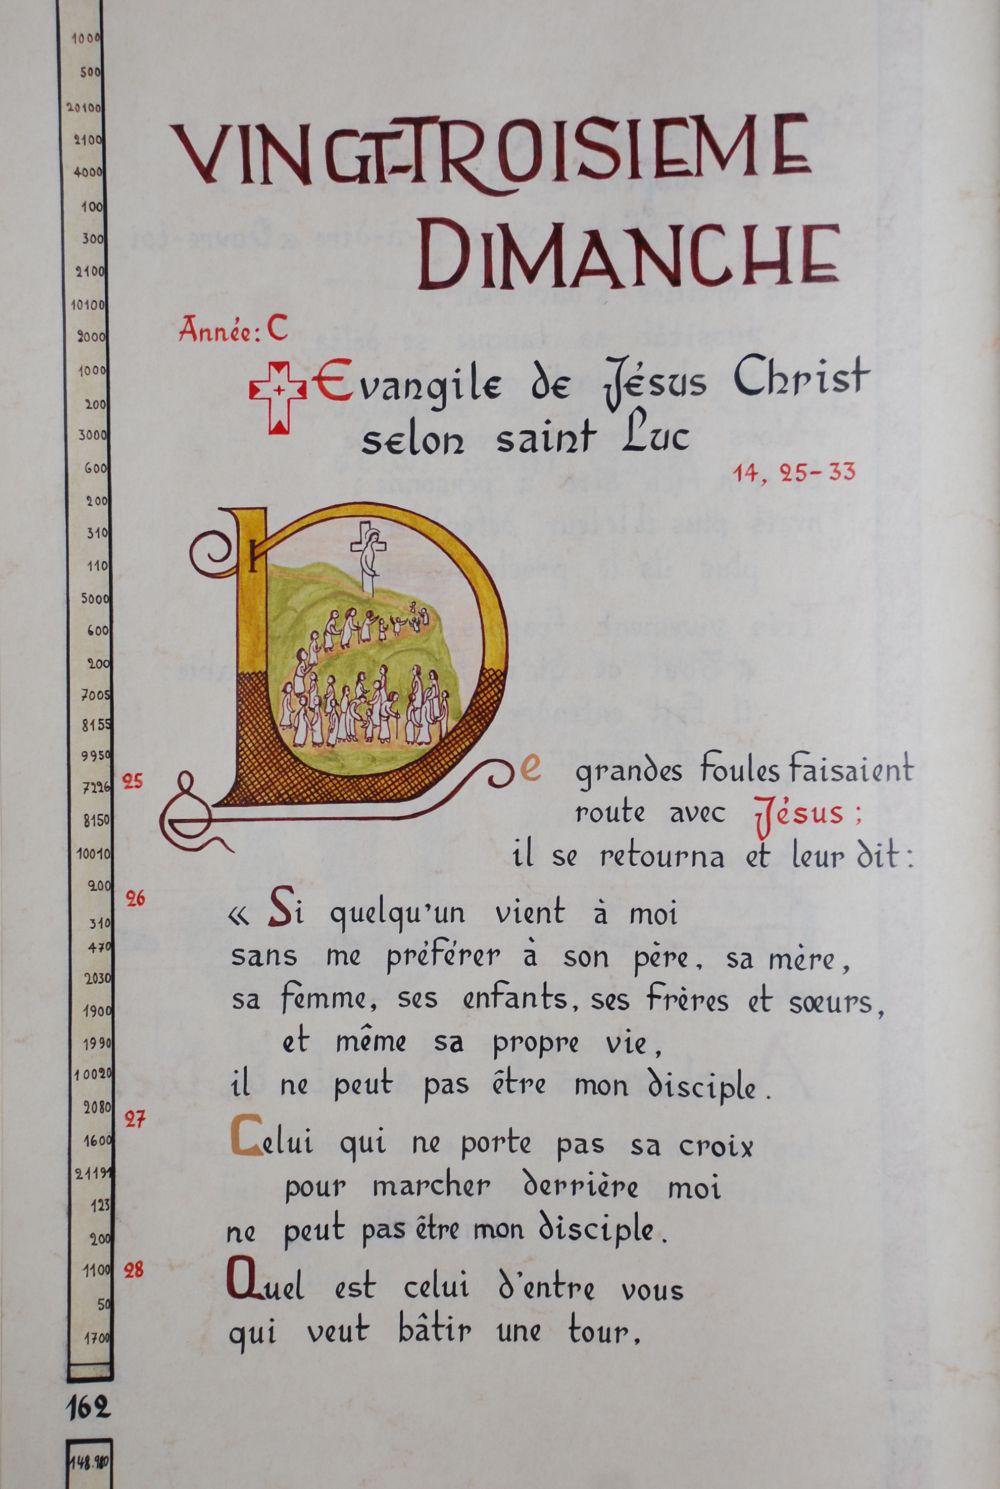 VINGT-TROISIEME
DIMANCHE
Année: C
Evangile de Jésus Christ
selon saint Luc
14, 25-33
25 De grandes foules faisaient
route avec Jésus ;
il se retourna et leur dit :
26 « Si quelqu'un vient à moi
sans me préférer à son père, sa mère,
sa femme, ses enfants, ses frères et sœurs,
et même sa propre vie,
il ne peut pas être mon disciple.
27 Celui qui ne porte pas sa croix
pour marcher derrière moi
ne peut pas être mon disciple.
28 Quel est celui d'entre vous
qui veut bâtir une tour,
1000
500
20100
2100
4000
100
300
2100
10100
2000
1000
200
3000
600
200
310
110
5000
600
200
7005
8155
9950
7226
8150
10010
200
310
470
2030
1900
1990
10020
2080
1600
21191
123
200
1100
50
1700
162
148.980